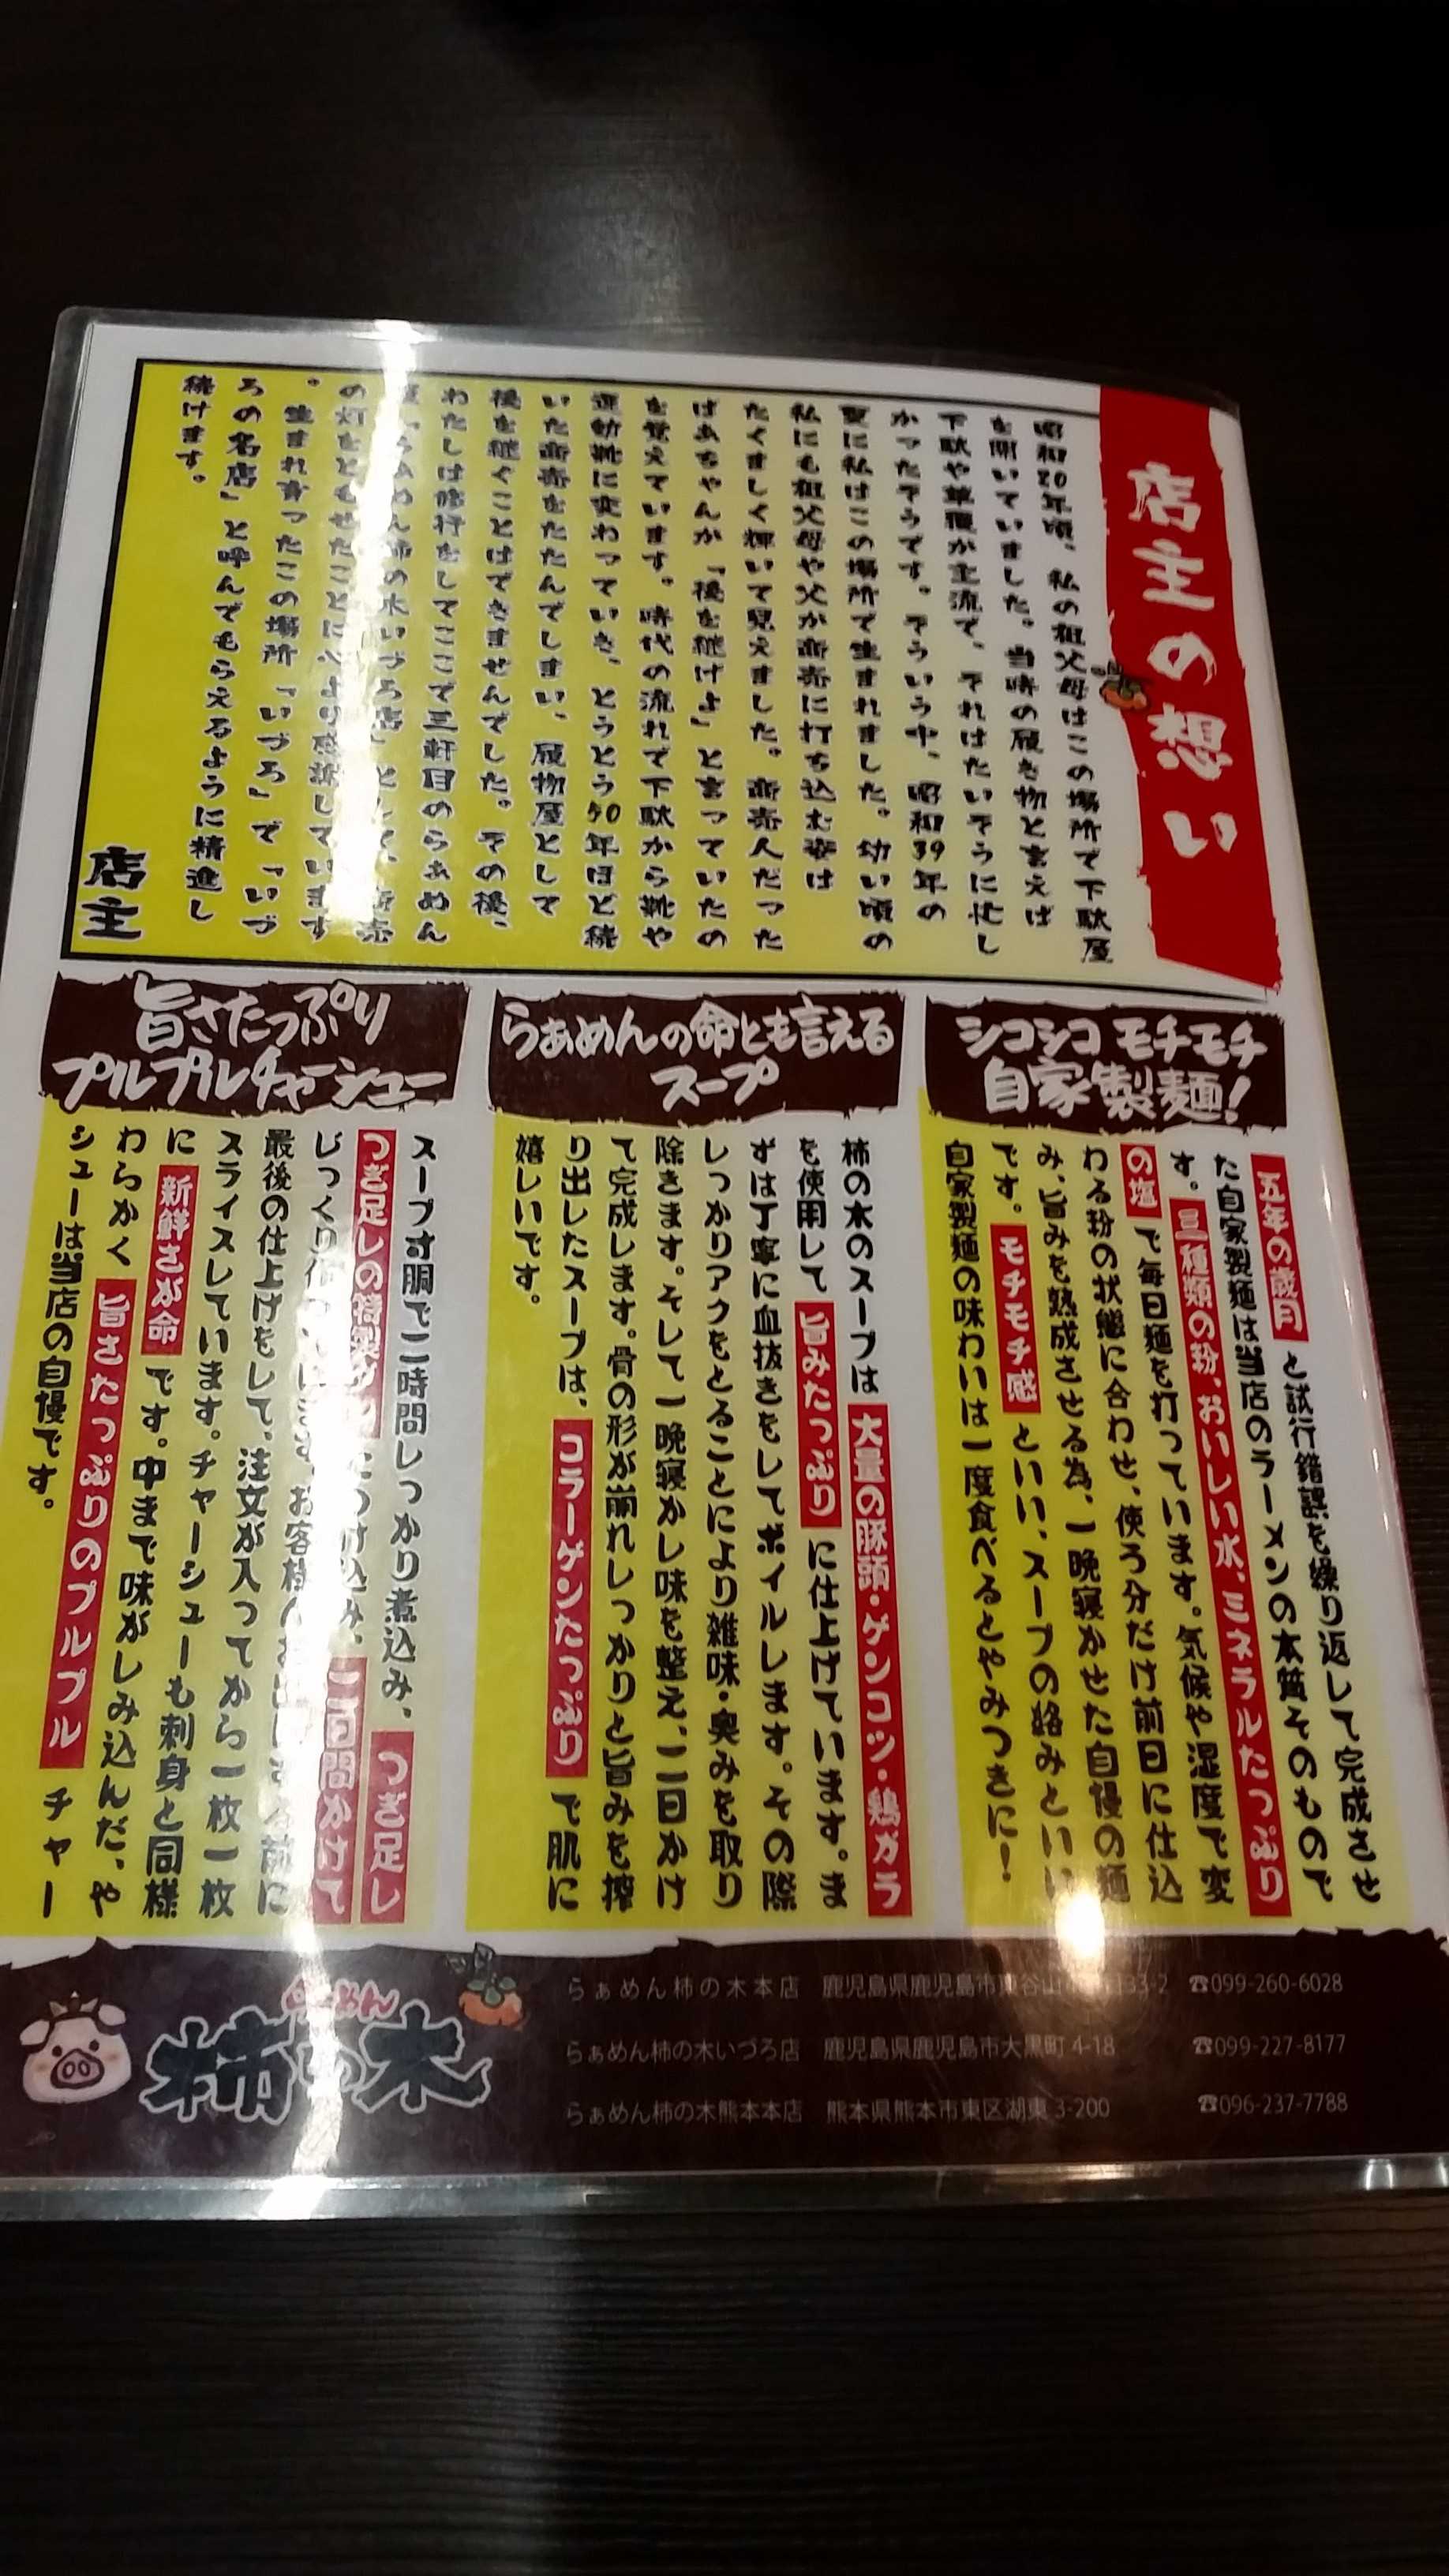 店主の想い
昭和20年頃、私の祖父母はこの場所で下駄屋
を開いていました。当時の履き物と言えば
下駄や草履が主流で、それはたいそうに忙し
かったそうです。そういう中、昭和39年の
夏に私はこの場所で生まれました。幼い頃の
私にも祖父母や父が商売に打ち込む姿は
たくましく輝いて見えました。商売人だった
ばあちゃんが「後を継げよ」と言っていたの
を覚えています。時代の流れで下駄から靴や
運動靴に変わっていき、とうとう50年ほど続
いた商売をたたんでしまい、履物屋として
後を継ぐことはできませんでした。その後、
わたしは修行をしてここで三軒目のらぁめん
「らぁめん柿の木いづろ店」として、商売
の灯をともせたことに心より感謝しています
。生まれ育ったこの場所「いづろ」で「いづ
ろの名店」と呼んでもらえるように精進し
続けます。
店主
シコシコ モチモチ
自家製麺!
五年の歳月と試行錯誤を繰り返して完成させ
た自家製麺は当店のラーメンの本質そのもので
す。三種類の粉、おいしい水、ミネラルたっぷり
の塩で毎日麺を打っています。気候や湿度で変
わる粉の状態に合わせ、使う分だけ前日に仕込
み、旨みを熟成させる為、一晩寝かせた自慢の麺
です。モチモチ感といい、スープの絡みといい
自家製麺の味わいは一度食べるとやみつきに!
らぁめんの命とも言える
スープ
柿の木のスープは大量の豚頭・ゲンコツ・鶏ガラ
を使用して旨みたっぷりに仕上げています。ま
ずは丁寧に血抜きをしてボイルします。その際
しっかりアクをとることにより雑味・臭みを取り
除きます。そして一晩寝かし味を整え、二日かけ
て完成します。骨の形が崩れしっかりと旨みを搾
り出したスープは、コラーゲンたっぷりで肌に
嬉しいです。
旨さたっぷり
プルプルチャーシュー
スープ寸胴で二時間しっかり煮込み、つぎ足し
つぎ足しの特製つけ込み、一日間かけて
じっくりお客様前に
最後の仕上げをして、注文が入ってから一枚一枚
スライスしています。チャーシューも刺身と同様
に新鮮さが命です。中まで味がしみ込んだ、や
わらかく旨さたっぷりのプルプルチャー
シューは当店の自慢です。
らぁめん
柿の木
らぁめん柿の木本店 鹿児島県鹿児島市東谷山33-2 ☎099-260-6028
らぁめん柿の木いづろ店 鹿児島県鹿児島市大黒町 4-18 ☎099-227-8177
らぁめん柿の木熊本本店 熊本県熊本市東区湖東 3-200 ☎096-237-7788